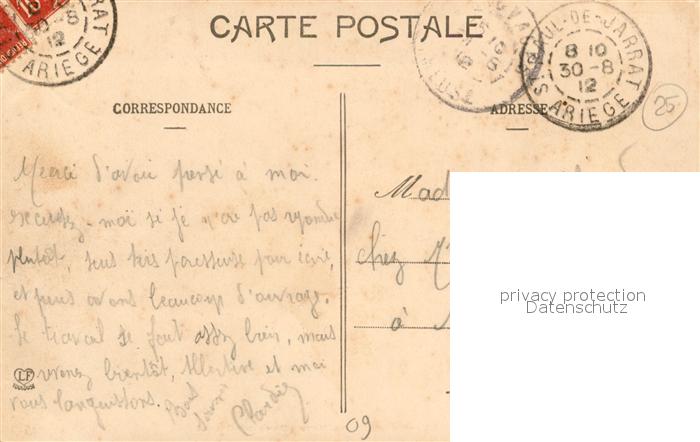 CARTE POSTALE
CORRESPONDANCE
ADRESSE
ARIEGE
12
ST-PAUL-DE-JARRAT
8 10
30-8
12
ARIEGE
25
Merci d'avoir pensé à moi.
excusez-moi si je n'ai pas répondu
plutôt, suis très paresseuse pour écrire,
et puis avons beaucoup d'ouvrage.
Le travail se fait assez bien, mais
revenez bientôt, et moi
vous languissons.
Mad
chez M
à
LF
TOULOUSE
09
privacy protection
Datenschutz